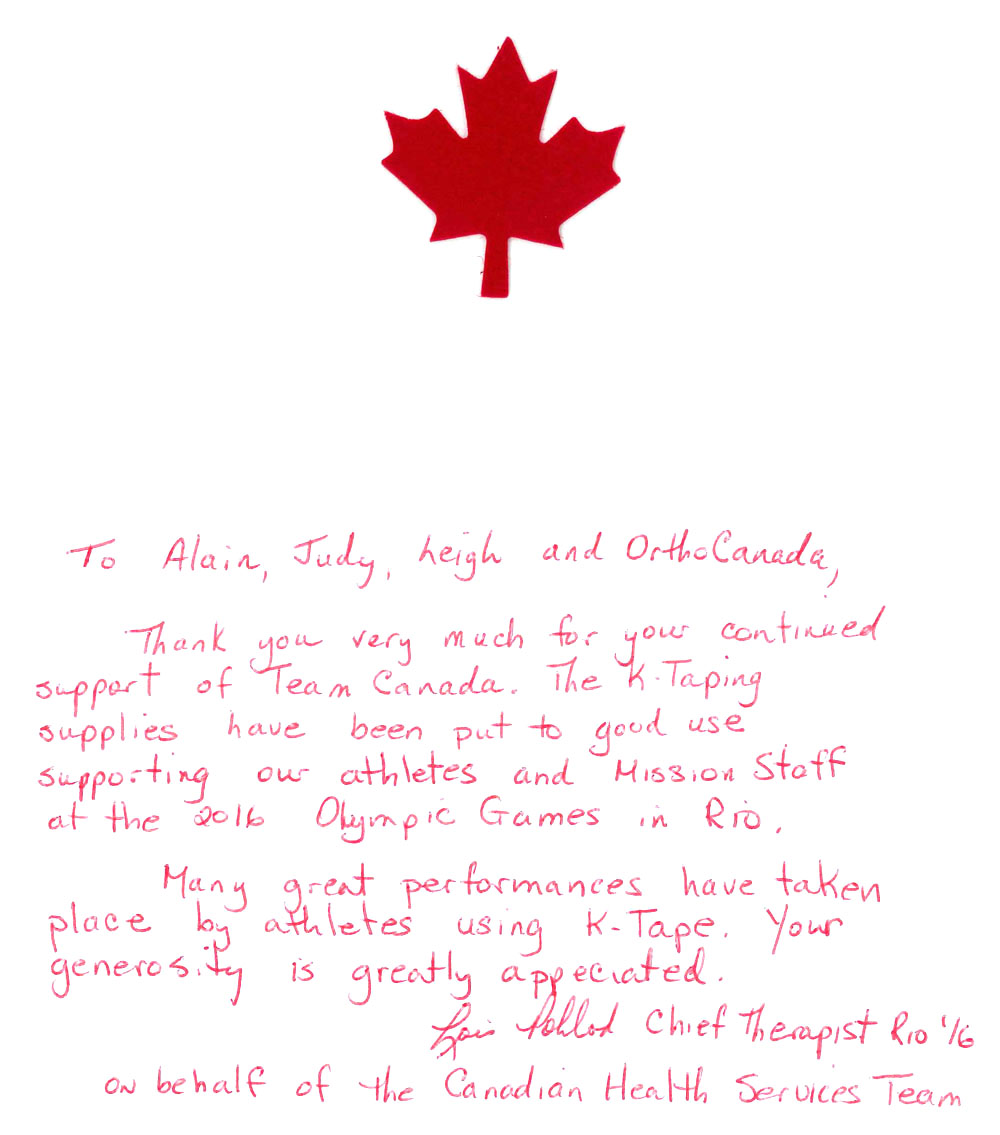 To Alain, Judy, Leigh and OrthoCanada,
Thank you very much for your continued
support of Team Canada. The K-Taping
supplies have been put to good use
supporting our athletes and Mission Staff
at the 2016 Olympic Games in Rio.
Many great performances have taken
place by athletes using K-Tape. Your
generosity is greatly appeciated.
Chief Therapist Rio '16
on behalf of the Canadian Health Services Team